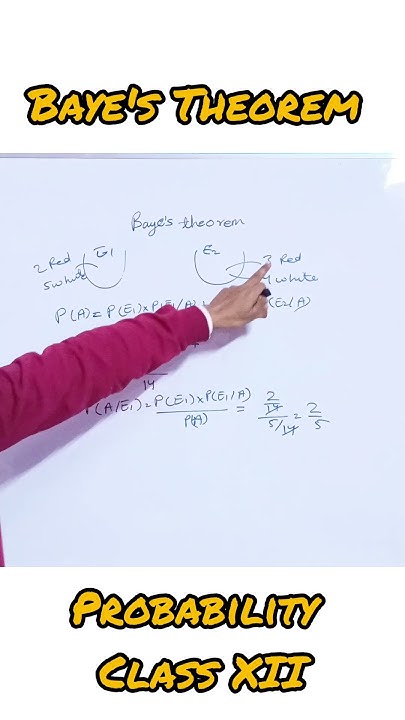 BAYE'S THEOREM
Baye's theorem
2 Red E1 E2 3 Red
5 white 4 white
P(A) = P(E1) x P(E1/A) (E2/A)
14
P(A/E1) = P(E1) x P(E1/A) / P(A) = 2/14 / 5/14 = 2/5
PROBABILITY
CLASS XII